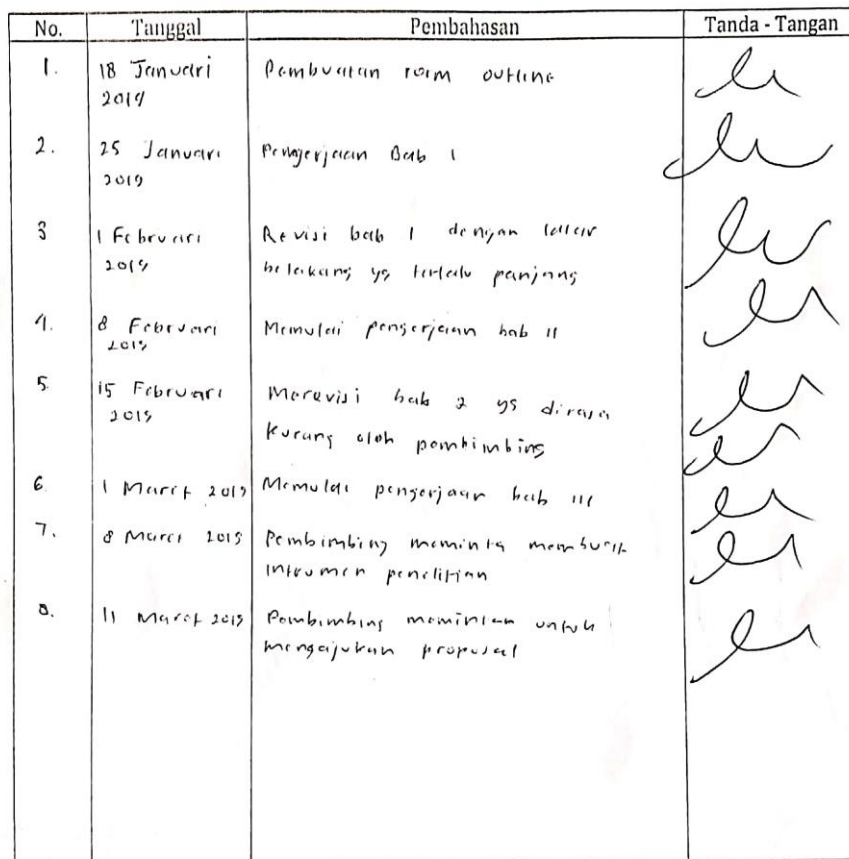 No. Tanggal Pembahasan Tanda - Tangan
1. 18 Januari Pembuatan outline
2019
2. 25 Januari Pengerjaan Bab 1
2019
3 1 Februari Revisi bab 1 dengan latar
2019 belakang yg terlalu panjang
4. 8 Februari Memulai pengerjaan bab II
2019
5. 15 Februari Merevisi bab 2 yg dirasa
2019 kurang oleh pembimbing
6 1 Maret 2019 Memulai pengerjaan bab III
7. 8 Maret 2019 Pembimbing meminta membuat
intrumen penelitian
8. 11 Maret 2019 Pembimbing untuk
mengajukan proposal